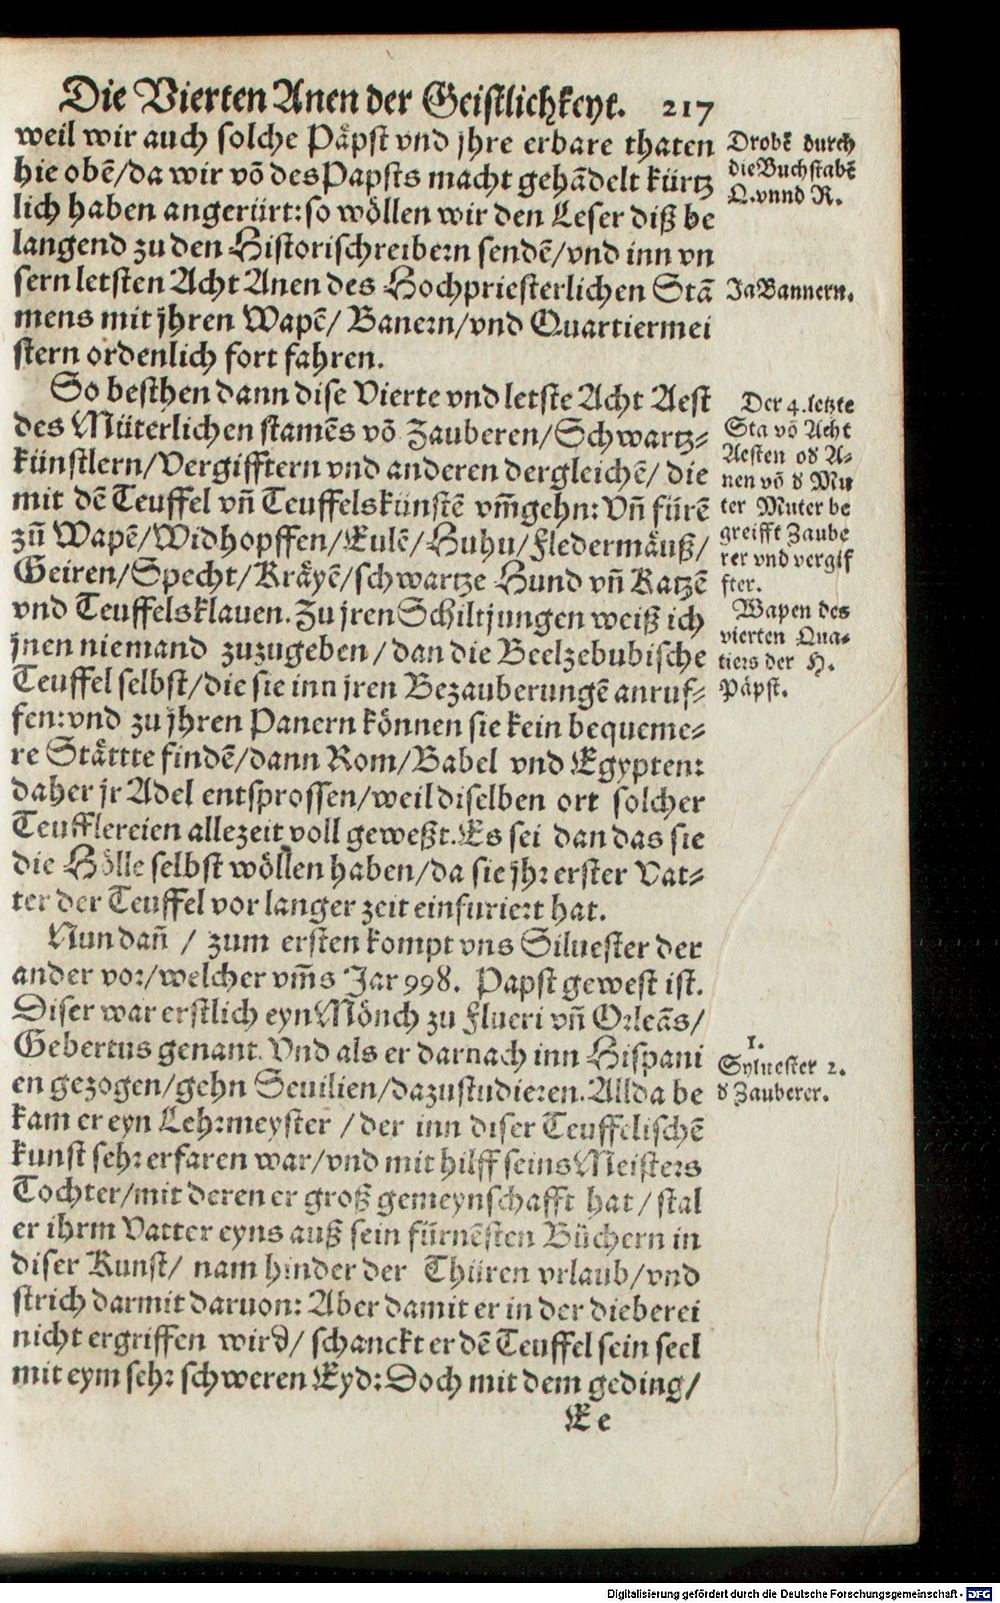 Die Vierten Anen der Geistlichkeyt. 217
weil wir auch solche Päpst vnd jhre erbare thaten
hie obē/da wir vō des Papsts macht gehādelt kürtz
lich haben angerürt: so wöllen wir den Leser diß be
langend zu den Historischreibern sendē/vnd inn vn
sern letsten Acht Anen des Hochpriesterlichen Stā
mens mit jhren Wapē/ Banern/vnd Quartiermei
stern ordenlich fort fahren.
So besthen dann dise Vierte vnd letste Acht Aest
des Müterlichen stamēs vō Zauberen/Schwartz-
künstlern/Vergifftern vnd anderen dergleichē/ die
mit dē Teuffel vn̄ Teuffelskünstē vm̄gehn: Vn̄ fürē
zū Wapē/Widhopffen/Eulē/Huhu/Fledermäuß/
Geiren/Specht/Kräyē/schwartze Hund vn̄ Katzē
vnd Teuffelsklauen. Zu jren Schiltjungen weiß ich
jnen niemand zuzugeben/dan die Beelzebubische
Teuffel selbst/die sie inn jren Bezauberungē anruf-
fen: vnd zu jhren Panern können sie kein bequeme-
re Stättte findē/dann Rom/Babel vnd Egypten:
daher jr Adel entsprossen/weil diselben ort solcher
Teufflereien allezeit voll geweßt. Es sei dan das sie
die Hölle selbst wöllen haben/da sie jhr erster Vat-
ter der Teuffel vor langer zeit einfuriert hat.
Nun dan̄ / zum ersten kompt vns Siluester der
ander vor/welcher vm̄s Jar 998. Papst gewest ist.
Diser war erstlich eyn Mönch zu Flueri vn̄ Orleās/
Gebertus genant. Vnd als er darnach inn Hispani
en gezogen/gehn Seuilien/da zustudieren. Allda be
kam er eyn Lehrmeyster /der inn diser Teuffelischē
kunst sehr erfaren war/vnd mit hilff seins Meisters
Tochter/mit deren er groß gemeynschafft hat/stal
er ihrm Vatter eyns auß sein fürnēsten Büchern in
diser Kunst/ nam hinder der Thüren vrlaub/vnd
strich darmit daruon: Aber damit er in der dieberei
nicht ergriffen wird/ schanckt er dē Teuffel sein seel
mit eym sehr schweren Eyd: Doch mit dem geding/
Ee
Drobē durch
die Buchstabē
Q. vnnd R.
Ja Bannern.
Der 4. letzte
Sta vō Acht
Aesten oð A-
nen vō ð Mu
ter Muter be
greifft Zaube
rer vnd vergif
fter.
Wapen des
vierten Qua-
tiers der H.
Päpst.
1.
Syluester 2.
ð Zauberer.
Digitalisierung gefördert durch die Deutsche Forschungsgemeinschaft - DFG